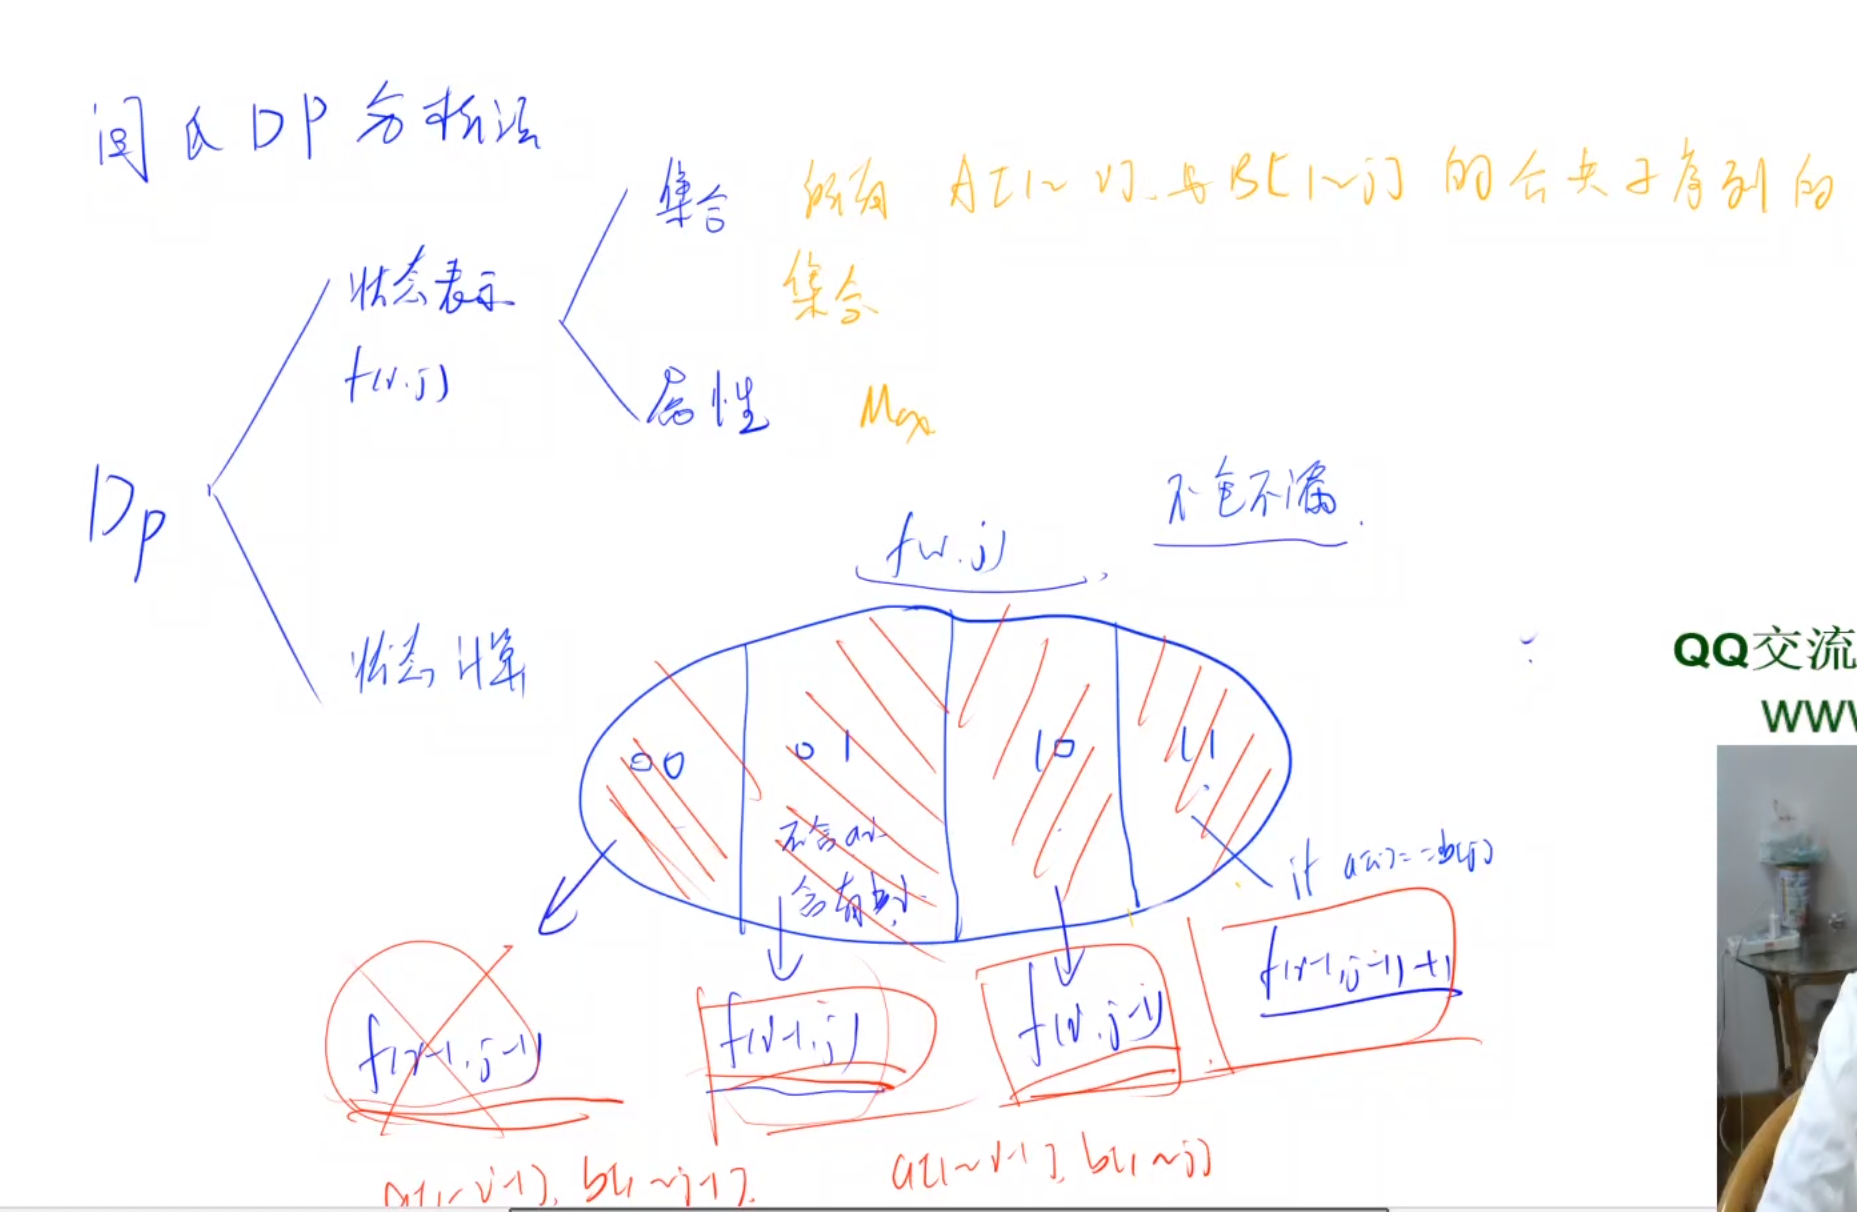 闫氏DP分析法
集合 所有 A[1~i]与B[1~j]的公共子序列的
集合
状态表示
f(i,j)
属性 Max
DP
不重不漏
f(i,j)
状态计算
QQ交流
WWW
00 01 10 11
不含a[i]
含有b[j]
if a[i]==b[j]
f(i-1,j-1)+1
f(i-1,j-1) f(i-1,j) f(i,j-1)
a[1~i-1], b[1~j-1]. a[1~i-1], b[1~j]